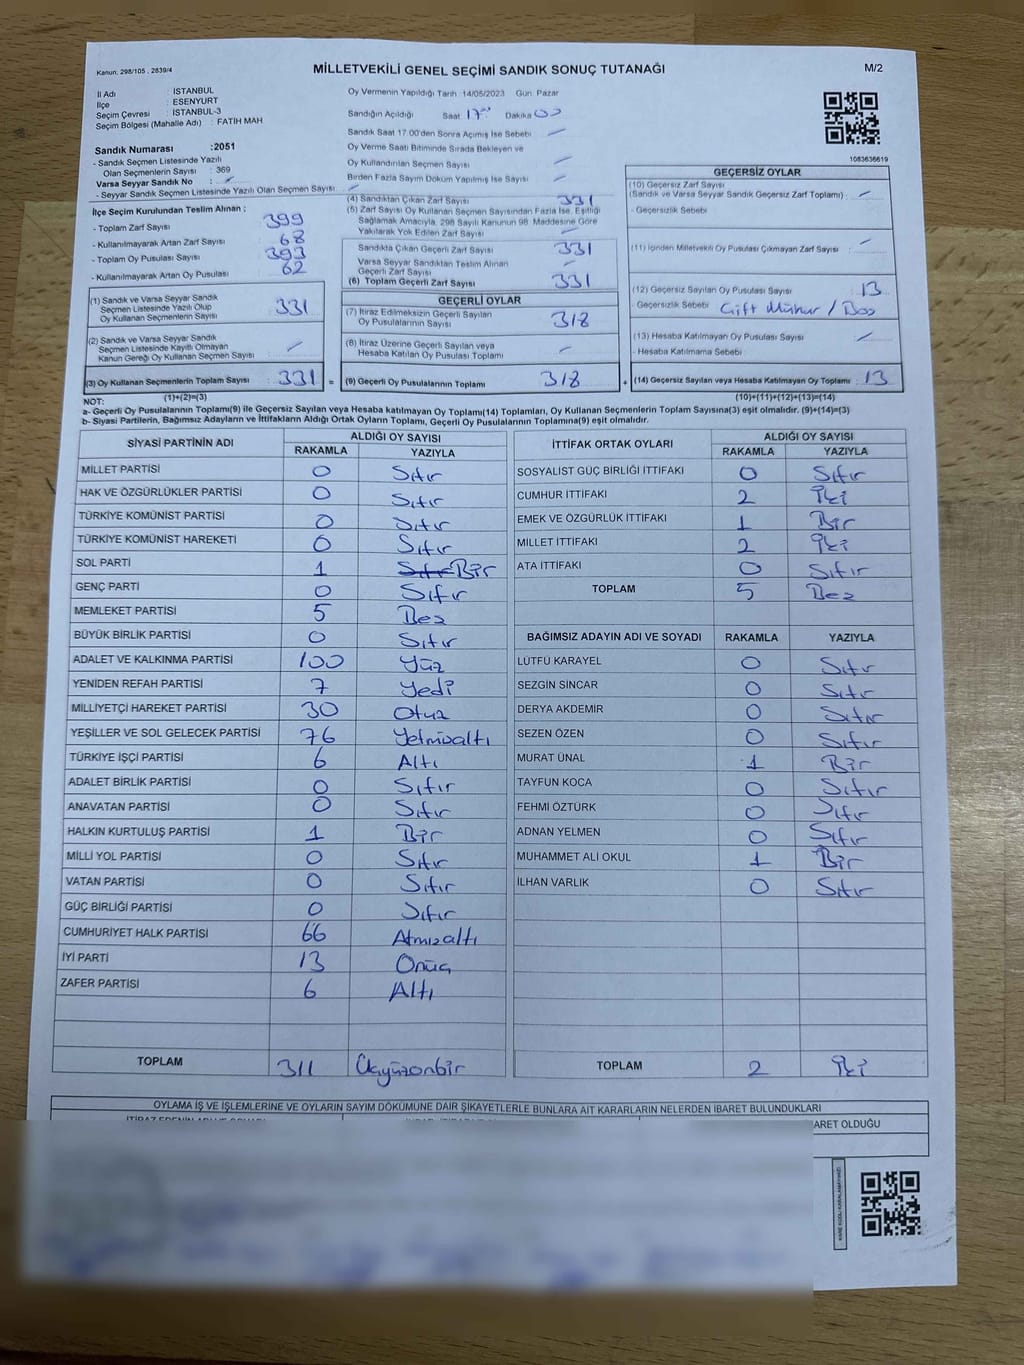 Kanun: 298/105 , 2839/4
MİLLETVEKİLİ GENEL SEÇİMİ SANDIK SONUÇ TUTANAĞI
M/2
İl Adı : İSTANBUL
İlçe : ESENYURT
Seçim Çevresi : İSTANBUL-3
Seçim Bölgesi (Mahalle Adı) : FATİH MAH
Oy Vermenin Yapıldığı Tarih : 14/05/2023 Gün : Pazar
Sandığın Açıldığı Saat 17 Dakika 00
Sandık Saat 17.00'den Sonra Açılmış İse Sebebi —
Oy Verme Saati Bitiminde Sırada Bekleyen ve
Oy Kullandırılan Seçmen Sayısı —
Birden Fazla Sayım Döküm Yapılmış İse Sayısı —
1083636619
Sandık Numarası :2051
- Sandık Seçmen Listesinde Yazılı
Olan Seçmenlerin Sayısı : 369
Varsa Seyyar Sandık No : —
- Seyyar Sandık Seçmen Listesinde Yazılı Olan Seçmen Sayısı : —
İlçe Seçim Kurulundan Teslim Alınan :
- Toplam Zarf Sayısı 399
- Kullanılmayarak Artan Zarf Sayısı : 68
- Toplam Oy Pusulası Sayısı 393
- Kullanılmayarak Artan Oy Pusulası : 62
(1) Sandık ve Varsa Seyyar Sandık
Seçmen Listesinde Yazılı Olup
Oy Kullanan Seçmenlerin Sayısı 331
(2) Sandık ve Varsa Seyyar Sandık
Seçmen Listesinde Kayıtlı Olmayan
Kanun Gereği Oy Kullanan Seçmen Sayısı —
(3) Oy Kullanan Seçmenlerin Toplam Sayısı : 331 =
(1)+(2)=(3)
(4) Sandıktan Çıkan Zarf Sayısı 331
(5) Zarf Sayısı Oy Kullanan Seçmen Sayısından Fazla İse, Eşitliği
Sağlamak Amacıyla, 298 Sayılı Kanunun 98. Maddesine Göre
Yakılarak Yok Edilen Zarf Sayısı —
Sandıkta Çıkan Geçerli Zarf Sayısı 331
Varsa Seyyar Sandıktan Teslim Alınan
Geçerli Zarf Sayısı —
(6) Toplam Geçerli Zarf Sayısı 331
GEÇERLİ OYLAR
(7) İtiraz Edilmeksizin Geçerli Sayılan
Oy Pusulalarının Sayısı 318
(8) İtiraz Üzerine Geçerli Sayılan veya
Hesaba Katılan Oy Pusulası Toplamı —
(9) Geçerli Oy Pusulalarının Toplamı 318 +
GEÇERSİZ OYLAR
(10) Geçersiz Zarf Sayısı
(Sandık ve Varsa Seyyar Sandık Geçersiz Zarf Toplamı) : —
- Geçersizlik Sebebi
(11) İçinden Milletvekili Oy Pusulası Çıkmayan Zarf Sayısı : —
(12) Geçersiz Sayılan Oy Pusulası Sayısı : 13
- Geçersizlik Sebebi : Çift Mühür / Boş
(13) Hesaba Katılmayan Oy Pusulası Sayısı : —
- Hesaba Katılmama Sebebi
(14) Geçersiz Sayılan veya Hesaba Katılmayan Oy Toplamı : 13
(10)+(11)+(12)+(13)=(14)
NOT:
a- Geçerli Oy Pusulalarının Toplamı(9) ile Geçersiz Sayılan veya Hesaba katılmayan Oy Toplamı(14) Toplamları, Oy Kullanan Seçmenlerin Toplam Sayısına(3) eşit olmalıdır. (9)+(14)=(3)
b- Siyasi Partilerin, Bağımsız Adayların ve İttifakların Aldığı Oy Sayıları Ortak Oyların Toplamı, Geçerli Oy Pusulalarının Toplamına(9) eşit olmalıdır.
SİYASİ PARTİNİN ADI ALDIĞI OY SAYISI
RAKAMLA YAZIYLA
MİLLET PARTİSİ 0 Sıfır
HAK VE ÖZGÜRLÜKLER PARTİSİ 0 Sıfır
TÜRKİYE KOMÜNİST PARTİSİ 0 Sıfır
TÜRKİYE KOMÜNİST HAREKETİ 0 Sıfır
SOL PARTİ 1 Sıfır Bir
GENÇ PARTİ 0 Sıfır
MEMLEKET PARTİSİ 5 Beş
BÜYÜK BİRLİK PARTİSİ 0 Sıfır
ADALET VE KALKINMA PARTİSİ 100 Yüz
YENİDEN REFAH PARTİSİ 7 Yedi
MİLLİYETÇİ HAREKET PARTİSİ 30 Otuz
YEŞİLLER VE SOL GELECEK PARTİSİ 76 Yetmişaltı
TÜRKİYE İŞÇİ PARTİSİ 6 Altı
ADALET BİRLİK PARTİSİ 0 Sıfır
ANAVATAN PARTİSİ 0 Sıfır
HALKIN KURTULUŞ PARTİSİ 1 Bir
MİLLİ YOL PARTİSİ 0 Sıfır
VATAN PARTİSİ 0 Sıfır
GÜÇ BİRLİĞİ PARTİSİ 0 Sıfır
CUMHURİYET HALK PARTİSİ 66 Atmışaltı
İYİ PARTİ 13 Onüç
ZAFER PARTİSİ 6 Altı
TOPLAM 311 Üçyüzonbir
İTTİFAK ORTAK OYLARI ALDIĞI OY SAYISI
RAKAMLA YAZIYLA
SOSYALİST GÜÇ BİRLİĞİ İTTİFAKI 0 Sıfır
CUMHUR İTTİFAKI 2 İki
EMEK VE ÖZGÜRLÜK İTTİFAKI 1 Bir
MİLLET İTTİFAKI 2 İki
ATA İTTİFAKI 0 Sıfır
TOPLAM 5 Beş
BAĞIMSIZ ADAYIN ADI VE SOYADI RAKAMLA YAZIYLA
LÜTFÜ KARAYEL 0 Sıfır
SEZGİN SİNCAR 0 Sıfır
DERYA AKDEMİR 0 Sıfır
SEZEN ÖZEN 0 Sıfır
MURAT ÜNAL 1 Bir
TAYFUN KOCA 0 Sıfır
FEHMİ ÖZTÜRK 0 Sıfır
ADNAN YELMEN 0 Sıfır
MUHAMMET ALİ OKUL 1 Bir
İLHAN VARLIK 0 Sıfır
TOPLAM 2 İki
OYLAMA İŞ VE İŞLEMLERİNE VE OYLARIN SAYIM DÖKÜMÜNE DAİR ŞİKAYETLERLE BUNLARA AİT KARARLARIN NELERDEN İBARET BULUNDUKLARI
ARET OLDUĞU